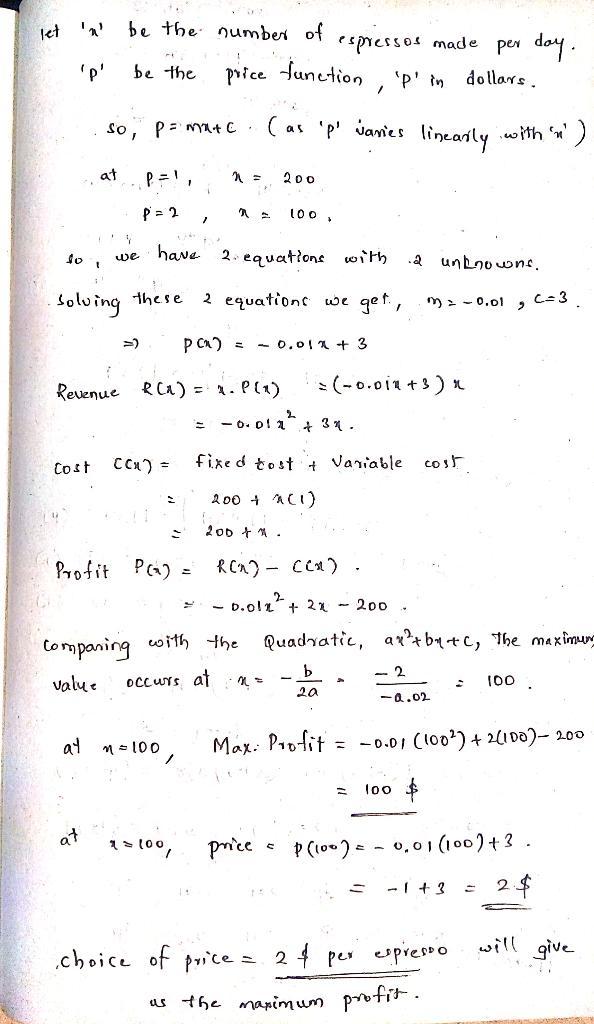 let 'x' be the number of espressos made per day.
'p' be the price function, 'p' in dollars.
so, p = mx+c. (as 'p' varies linearly with 'x')
at p=1, x = 200
p=2, x = 100.
so, we have 2 equations with 2 unknowns.
solving these 2 equations we get, m=-0.01, c=3.
⇒ p(x) = -0.01x + 3
Revenue R(x) = x.P(x) = (-0.01x+3)x
= -0.01x² + 3x.
Cost C(x) = fixed cost + Variable cost
= 200 + x(1)
= 200 + x.
Profit P(x) = R(x) - C(x).
= -0.01x² + 2x - 200.
Comparing with the Quadratic, ax²+bx+c, The maximum
value occurs at x = -b/2a = -2/-0.02 = 100.
at x=100, Max. Profit = -0.01(100²)+2(100)-200
= 100 $
at x=100, price = P(100) = -0.01(100)+3.
= -1+3 = 2$
choice of price = 2$ per espresso will give
us the maximum profit.